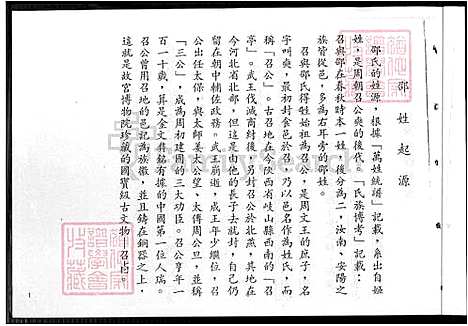 邵姓起源
邵氏的姓源，根據「萬姓統譜」記載，系出自姬
姓，是周朝召公奭的後代。「氏族博考」記載：
召與邵在春秋時本一姓，後分為二，汝南、安陽之
族皆從邑，多為有耳旁之邵姓。
召與邵氏得姓始祖為召公，是周文王的庶子，名
字叫奭，最初封食邑於召，乃以邑名作為姓氏，而
稱「召公」。古召地在今陝西省岐山縣西南的「召
亭」。武王伐滅商紂後，另封召公於北燕，其地在
今河北省北部，但這是由他的長子去就封，自己仍
留在朝中輔佐政務。武王崩逝，成王年少繼位，召
公出任太保，與太師姜太公望、太傅周公旦，並稱
「三公」，成為周初建國的三大功臣。召公享年一
百一十歲，算是金文彝銘有據的中國第一位人瑞。
召公曾用召地的邑記為族徽，並且鑄在銅器之上，
這就是故宮博物院珍藏的國寶級古文物「召卣」。
1